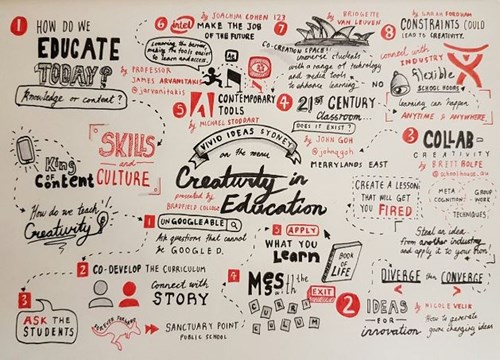 1 HOW DO WE
EDUCATE
TODAY?
Knowledge or content?
by PROFESSOR
JAMES ARVANITAKIS
@jarvanitakis
SKILLS
and
CULTURE
King
OF
Content
How do we teach
Creativity
1 UNGOOGLEABLE
Ask questions that cannot
be GOOGLED.
2 CO-DEVELOP THE CURRICULUM
Connect with
STORY
3
ASK THE
STUDENTS
SANCTUARY POINT
PUBLIC SCHOOL
4 Mess with the
CURRICULUM
EXIT
5 APPLY
WHAT YOU
Learn
BOOK
OF
LIFE
VIVID IDEAS SYDNEY
on the menu
Creativity in
Education
presented by
BRADFIELD COLLEGE
6 intel MAKE THE JOB
OF THE FUTURE
by JOACHIM COHEN 123
5 CONTEMPORARY
TOOLS
by MICHAEL STODDART
7 by BRIDGETTE
VAN LEUVEN
CO-CREATION SPACE!
Immerse students
with a range of technology
and media tools
to enhance learning
4 21ST CENTURY
Classroom...
DOES IT EXIST?
by JOHN GOH
@johnqgoh
MERRYLANDS EAST
8 CONSTRAINTS COULD
LEAD TO CREATIVITY.
connect with
INDUSTRY
NO
flexible
SCHOOL HOURS
learning can happen
ANYTIME & ANYWHERE
3 COLLAB-
CREATIVITY
by BRETT ROLFE
CREATE A LESSON
THAT WILL GET
YOU FIRED
META-
COGNITION!
GROUP
WORK
TECHNIQUES.
Steal an idea
from another industry
and apply it to your own!
DIVERGE then CONVERGE
2 IDEAS
FOR
innovation
by NICOLE VELIK
How to generate
game changing ideas